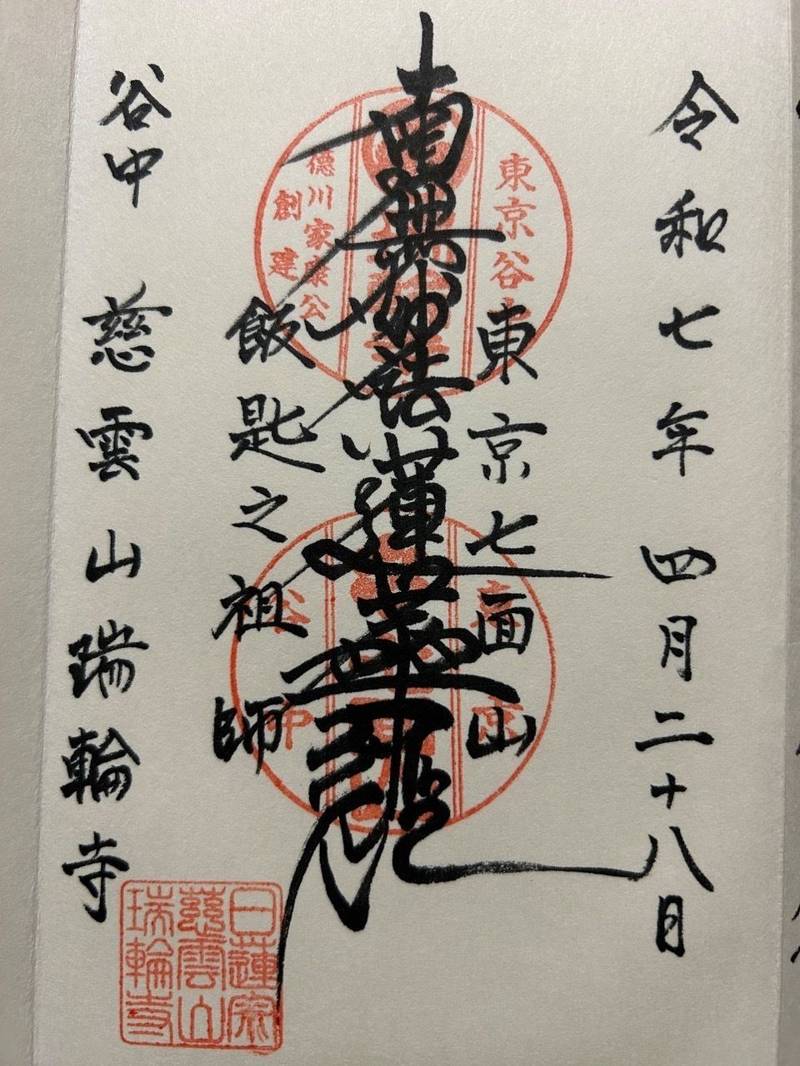 令和七年四月二十八日
東京七面山
南無妙法蓮華経
飯匙之祖師
谷中 慈雲山瑞輪寺
東京谷
徳川家康公
創建
谷中
日蓮宗
慈雲山
瑞輪寺